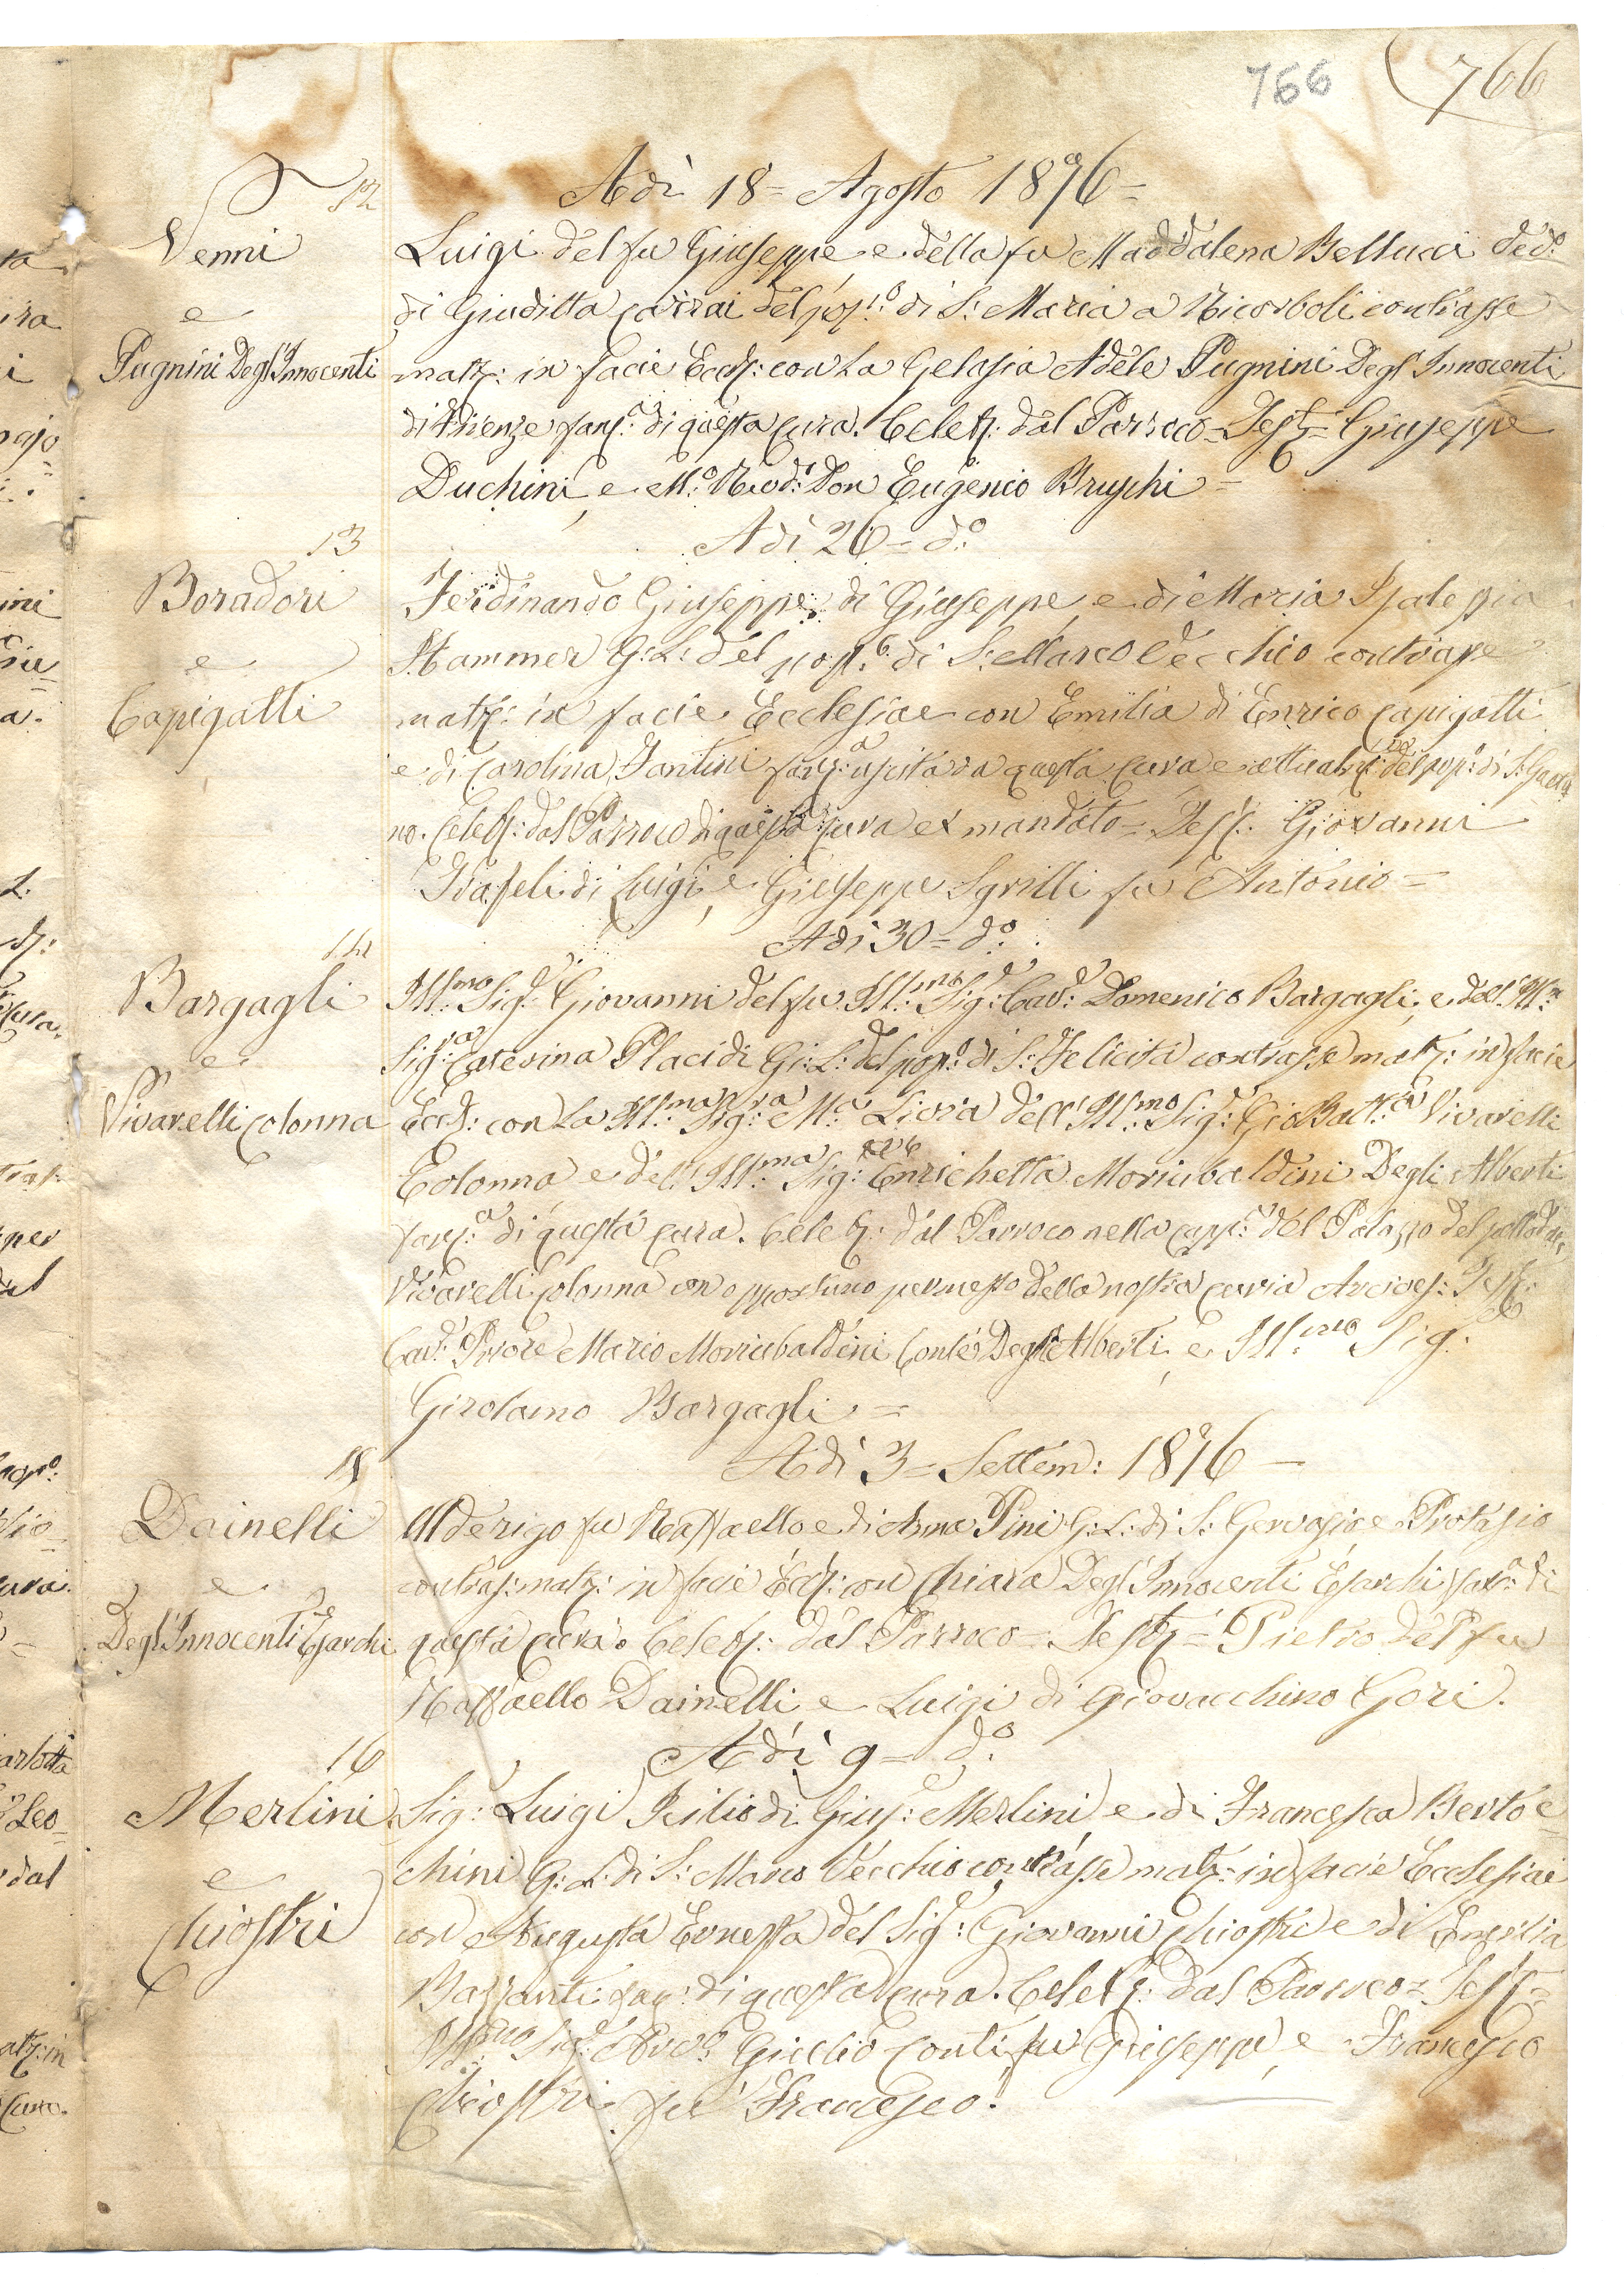 766 766
12
Adì 18 = Agosto 1876 =
Venni
e
Pugnini Degl'Innocenti
Luigi del fu Giuseppe, e della fu Maddalena Bellucci Ved.o
di Giuditta Carrai del pop.o di S: Maria a Ricorboli contrasse
matr: in facie Eccl: con la Gelasia Adele Pugnini Degl'Innocenti
di Firenze fanc.a di questa Cura. Celeb: dal Parroco = Test: = Giuseppe
Duchini, e M.o Revd.o Don Eugenio Bruschi =
Adì 26 = d.o
13
Boradori
e
Capigatti
Ferdinando Giuseppe di Giuseppe, e di Maria
Hammer G: L: del pop.o di S: Marco Vecchio contrasse
matr: in facie Ecclesiae con Emilia di Enrico Capigatti
e di Carolina Fantini fanc.a uscita da questa Cura e attualm: del pop.o di S: Gaeta
no. Celeb: dal Parroco di questa Cura ex mandato = Test: Giovanni
di Luigi, e Giuseppe Sgrilli fu Antonio =
Adì 30 = d.o
14
Bargagli
e
Vivarelli Colonna
Ill:mo Sig: Giovanni del fu Ill:mo Sig: Cav: Domenico Bargagli, e dell' Ill:ma
Sig:ra Caterina Placidi G: L: del pop.o di S: Felicita contrasse matr: in facie
Eccl: con la Ill:ma Sig:ra M.a Livia dell' Ill:mo Sig: Gio Batt.a Vivarelli
Colonna e dell' Ill:ma Sig: Enrichetta Moriubaldini Degli Alberti
fanc.a di questa Cura. Celeb: dal Parroco nella Capp.a del Palazzo del
Vivarelli Colonna con opportuno permesso della nostra Curia Arcives: Test:
Cav: Priore Mario Moriubaldini Conte Degli Alberti, e Ill:mo Sig:
Girolamo Bargagli =
Adì 3 = Settem: 1876 =
15
Dainelli
e
Degl'Innocenti Esarchi
Alderigo fu Raffaello e di Anna Pini G: L: di S: Gervasio e Protasio
contras: matr: in facie Eccl: con Chiara Degl'Innocenti Esarchi fanc.a di
questa Cura. Celeb: dal Parroco = Test: = Pietro del fu
Raffaello Dainelli e Luigi di Giovacchino Gori.
Adì 9 = d.o
16
Merlini
e
Chiostri
Sig: Luigi Icilio di Gius: Merlini e di Francesca Bertoc=
chini G: L: di S: Marco Vecchio contrasse matr: in facie Ecclesiae
con Augusta Ernesta del Sig: Giovanni Chiostri e di Emilia
Bazzanti fanc: di questa Cura. Celeb: dal Parroco = Test: =
Ill:mo Sig: Avv: Giulio Conti fu Giuseppe, e Francesco
Chiostri fu Francesco.